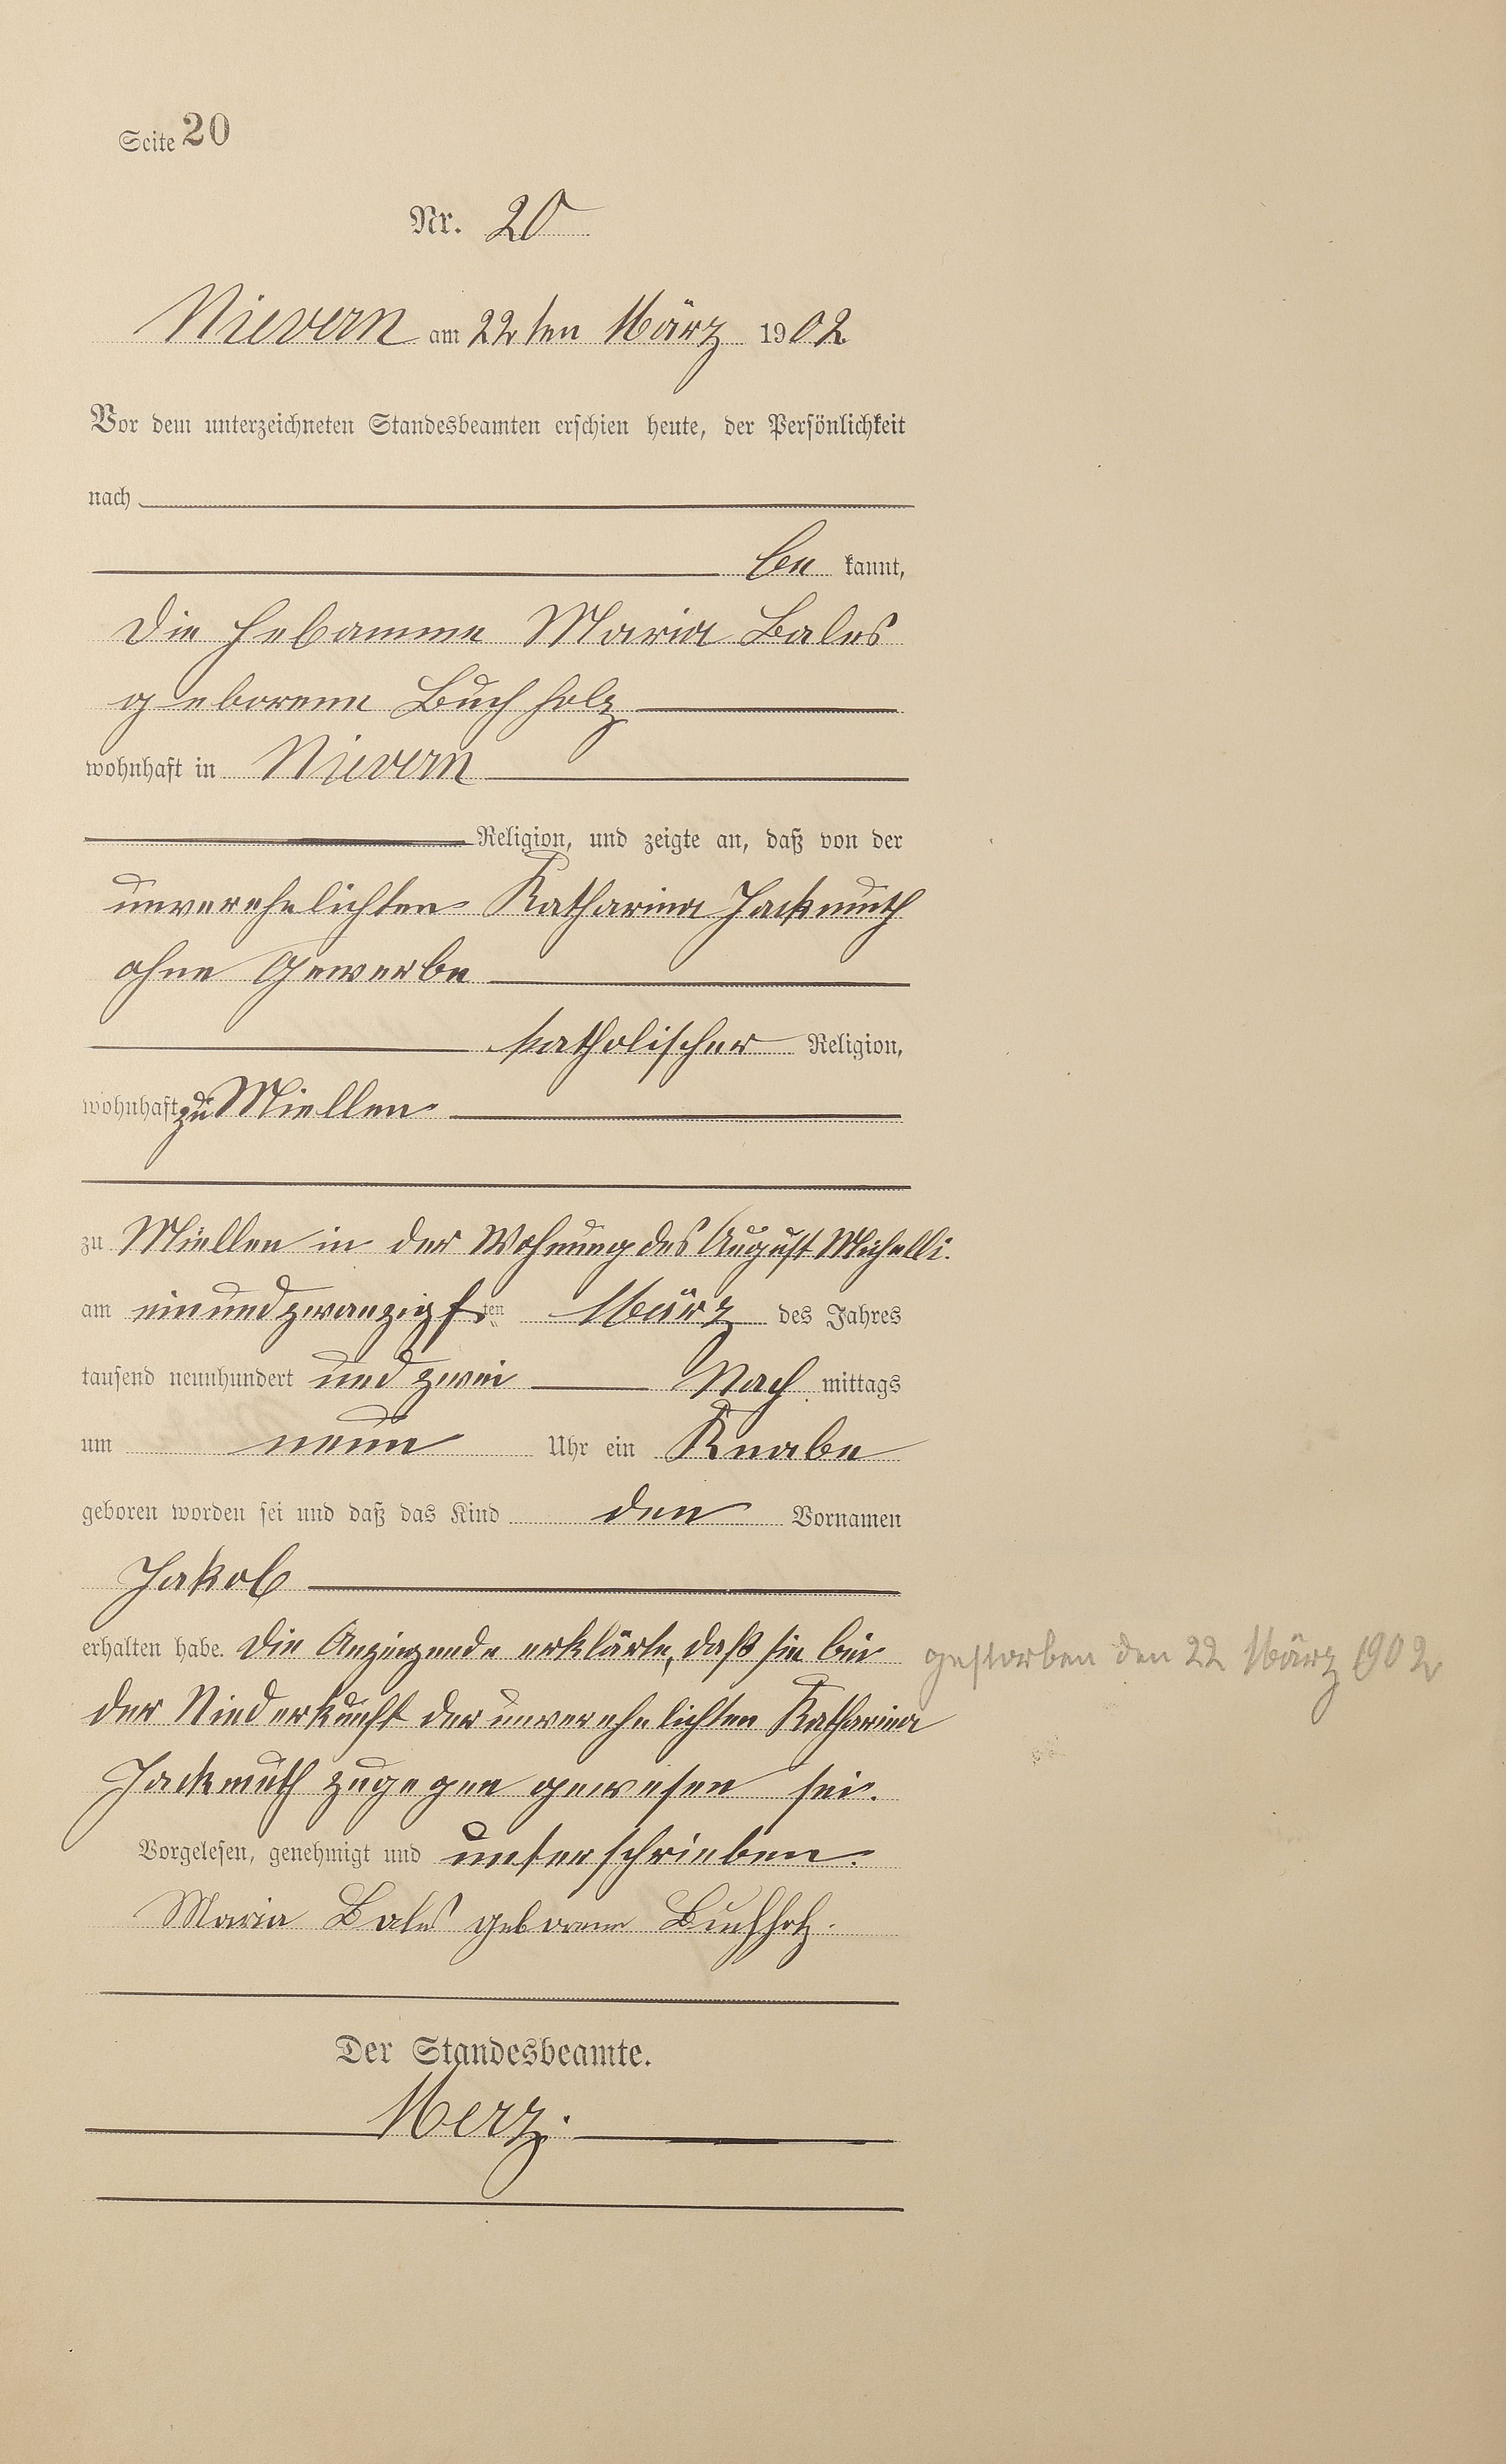 Seite 20
Nr. 20
Nievern am 22ten März 1902
Vor dem unterzeichneten Standesbeamten erschien heute, der Persönlichkeit
nach
be kannt,
die Hebamme Maria Bales
geborene Buchholz
wohnhaft in Nievern
Religion, und zeigte an, daß von der
unverehelichten Katharina Jackmuth
ohne Gewerbe
katholischer Religion,
wohnhaft zu Miellen
zu Miellen in der Wohnung des August Michelli.
am einundzwanzigsten März des Jahres
tausend neunhundert und zwei Nach mittags
um neun Uhr ein Knabe
geboren worden sei und daß das Kind den Vornamen
Jakob
erhalten habe. Die Anzeigende erklärte, daß sie bei
der Niederkunft der unverehelichten Katharina
Jackmuth zugegen gewesen sei.
gestorben den 22 März 1902
Vorgelesen, genehmigt und unterschrieben.
Maria Bales geborene Buchholz.
Der Standesbeamte.
Merz.